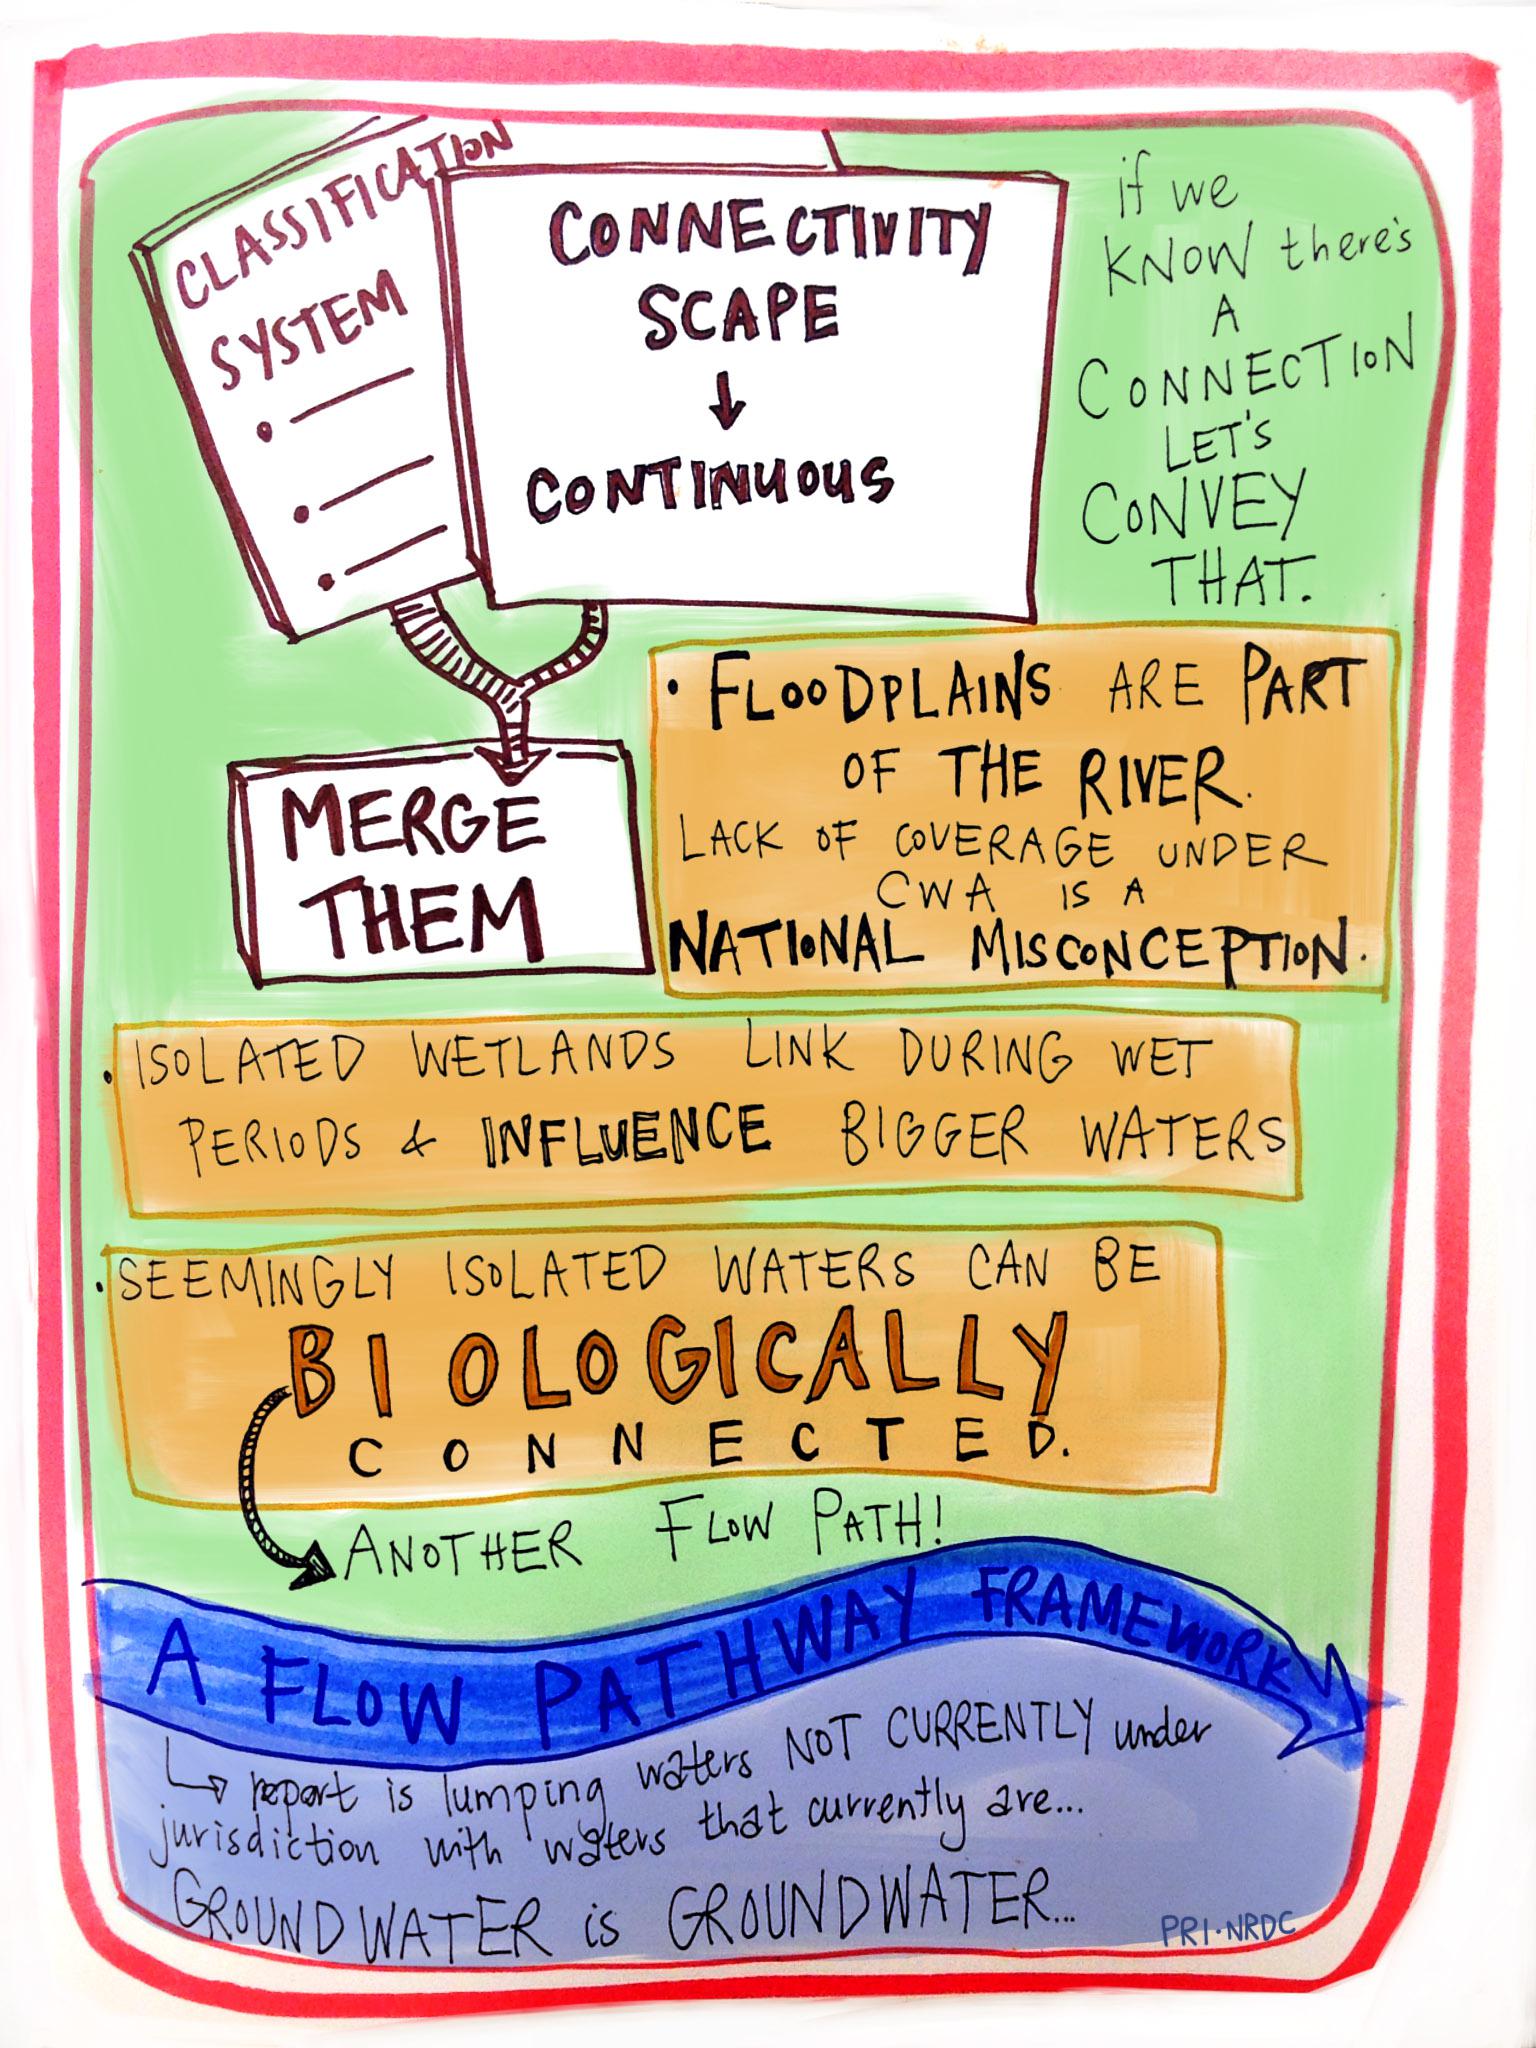 CLASSIFICATION
SYSTEM
CONNECTIVITY
SCAPE
CONTINUOUS
if we
KNOW there's
A
CONNECTION
LET'S
CONVEY
THAT.
MERGE
THEM
• FLOODPLAINS ARE PART
OF THE RIVER.
LACK OF COVERAGE UNDER
CWA IS A
NATIONAL MISCONCEPTION.
• ISOLATED WETLANDS LINK DURING WET
PERIODS & INFLUENCE BIGGER WATERS
• SEEMINGLY ISOLATED WATERS CAN BE
BIOLOGICALLY
CONNECTED.
ANOTHER FLOW PATH!
A FLOW PATHWAY FRAMEWORK
report is lumping waters NOT CURRENTLY under
jurisdiction with waters that currently are...
GROUNDWATER is GROUNDWATER...
PRI•NRDC